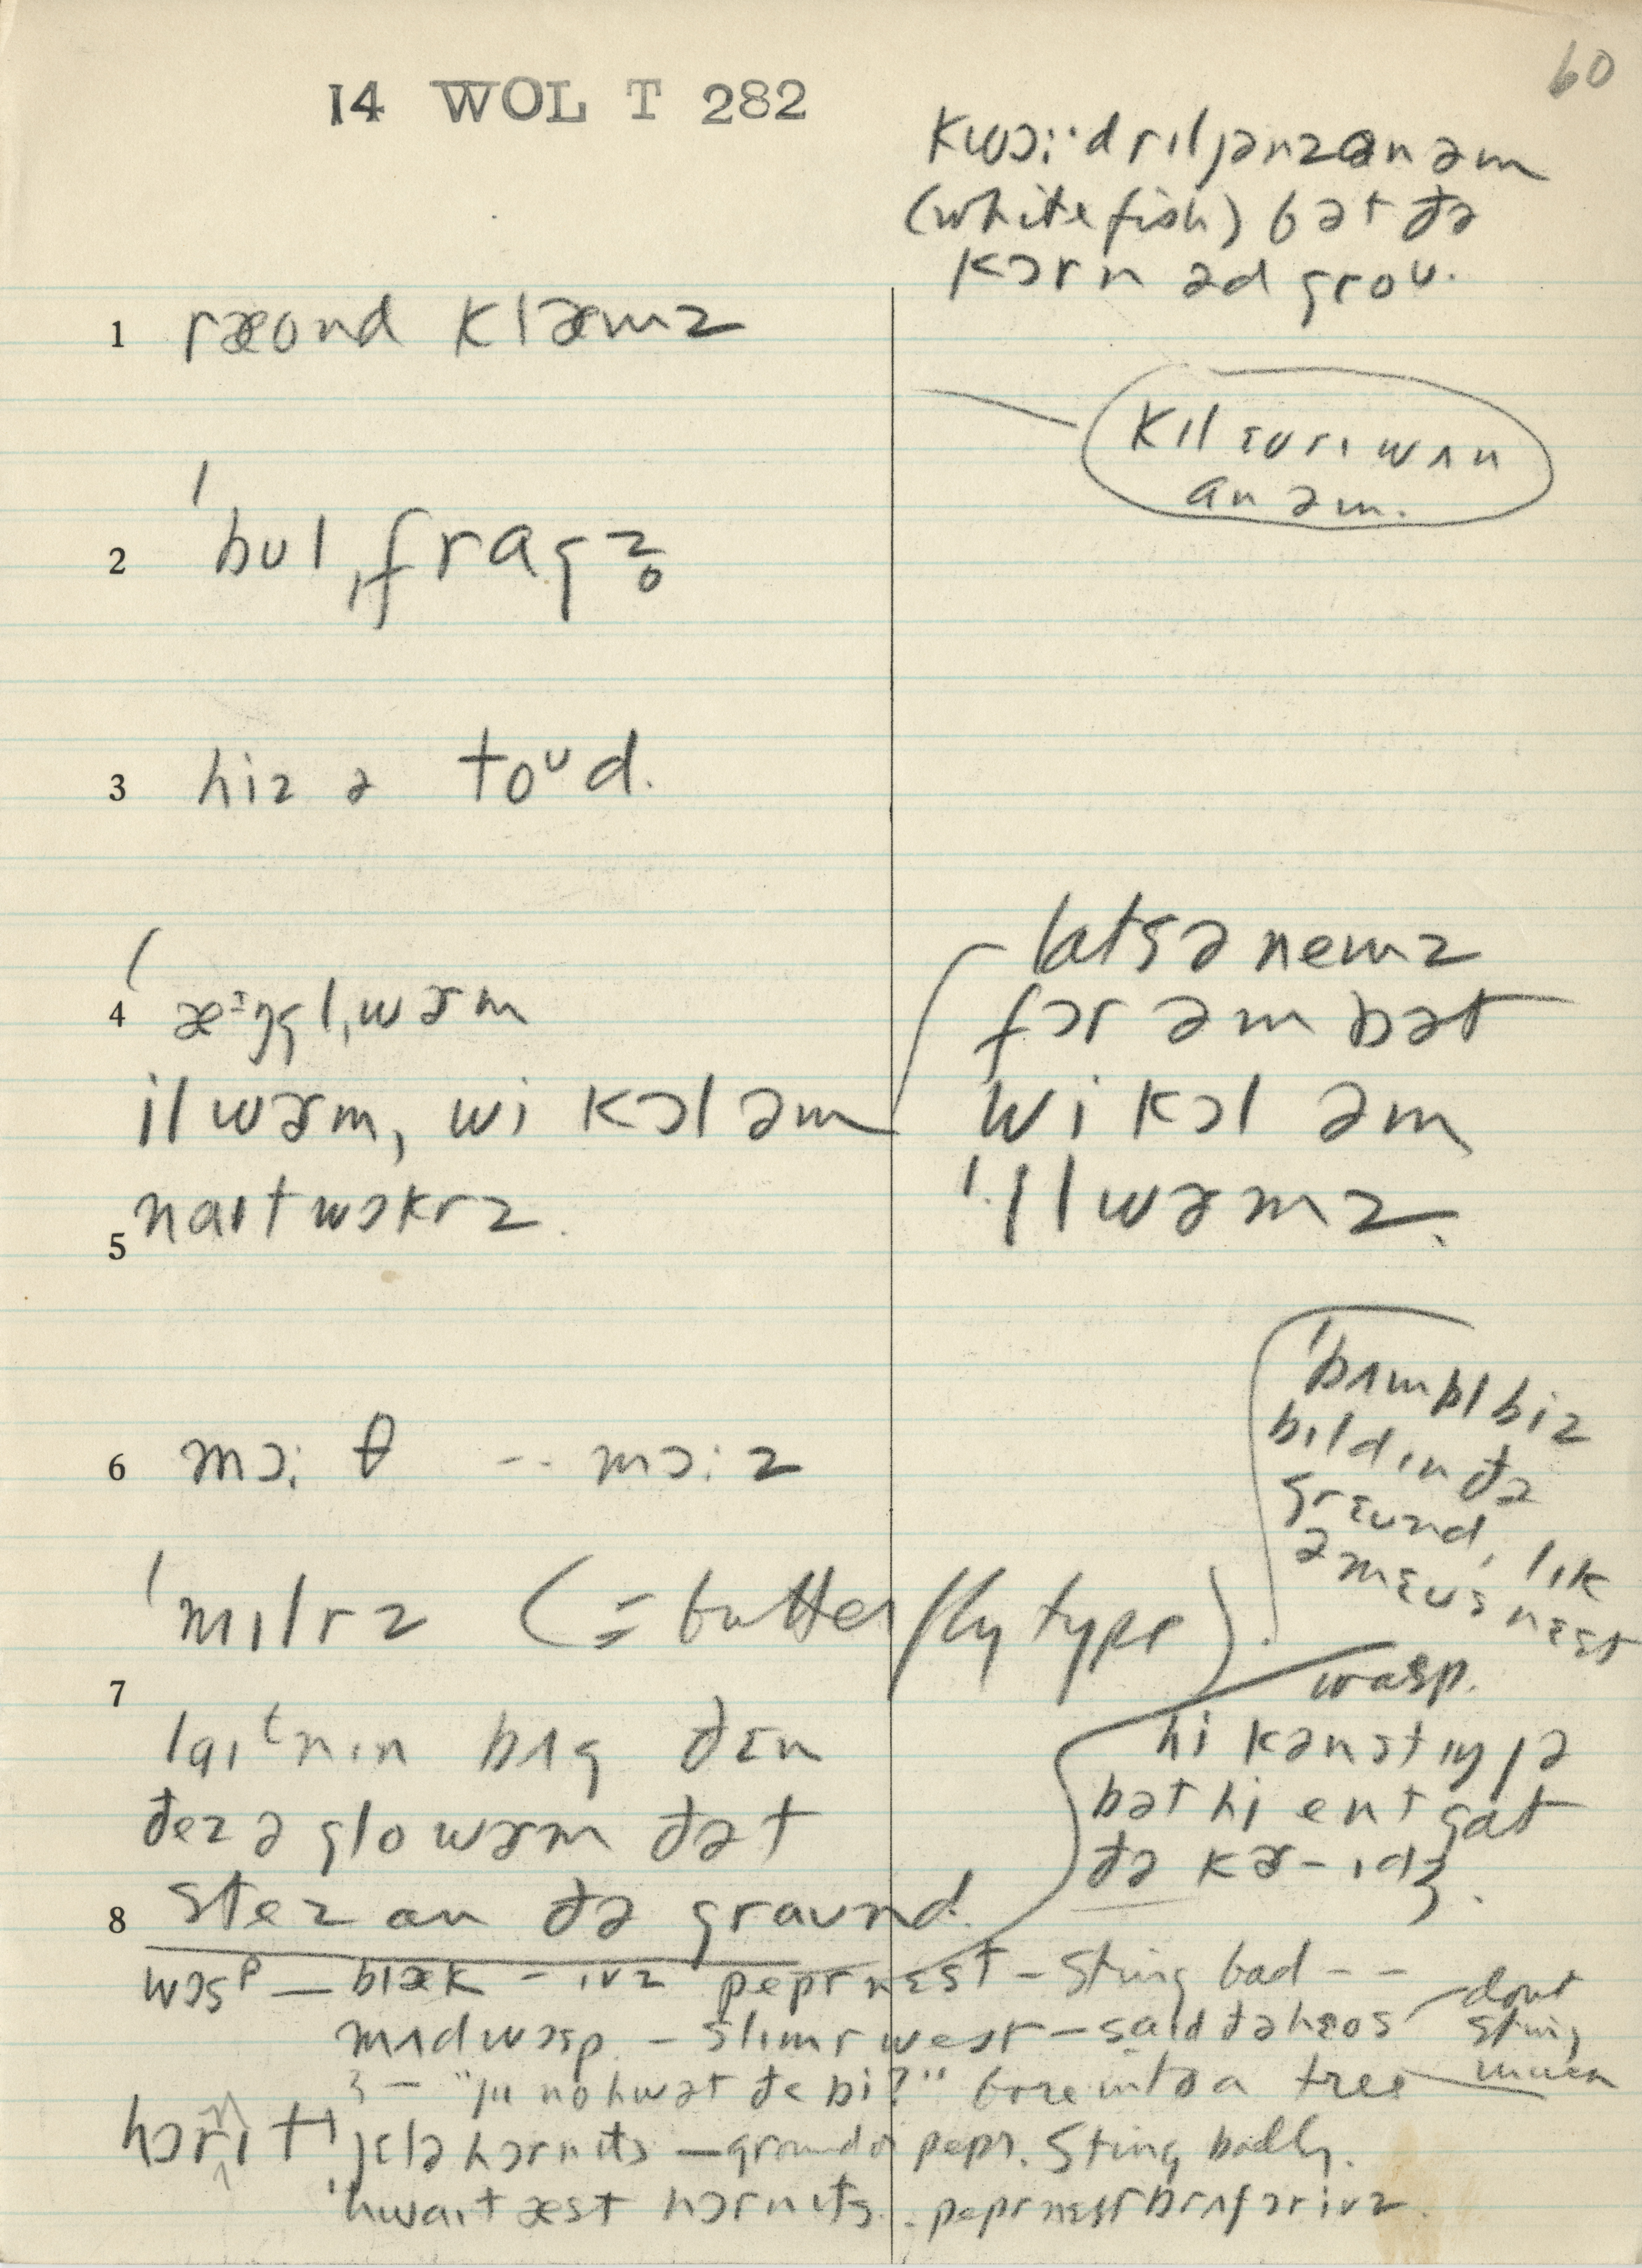 60
14 WOL T 282
kwɔiːdrɪljənzanəm
(whitefish) bət ðə
kɔrn əd groᴜ.
1 ræond klæmz
kɪl ɛvrɪ wʌn
an əm.
2 ˈbulˌfragz̥
3 hiz ə toᵁd.
4 ˈæᶦŋglˌwɚm
ilwɚm, wi kɔləm
naɪtwɔkrz.
latsə nemz
fɔr əm bət
wi kɔl əm
ˈilwɚmz.
5
6 mɔːθ -- mɔːz
ˈbʌmblbiz
bɪld ɪn ðə
grɛund, lɪk
ə mɛus nɛst
ˈmɪlrz (= butterfly type).
7
wasp.
laɪᵗnɪn bʌg ðɛn
ðez ə glowɚm ðət
8 stez an ðə graund.
hi kənstɪŋ jə
bət hi ent gat
ðə kɚ-ɪdʒ.
wɔsᵖ — blæk - ivz pepr nɛst - sting bad - -
mʌdwɔsp - slɪmr west - said ðə hɛos dont sting much
3 - "ju no hwət ðe bi?" bore into a tree
hɔrnɪt jɛlə hɔrnɪts — ground or pepr. Sting badly.
ˈhwaɪt æst hɔrnɪts. peprnɛst brʌʃ ər ivz.